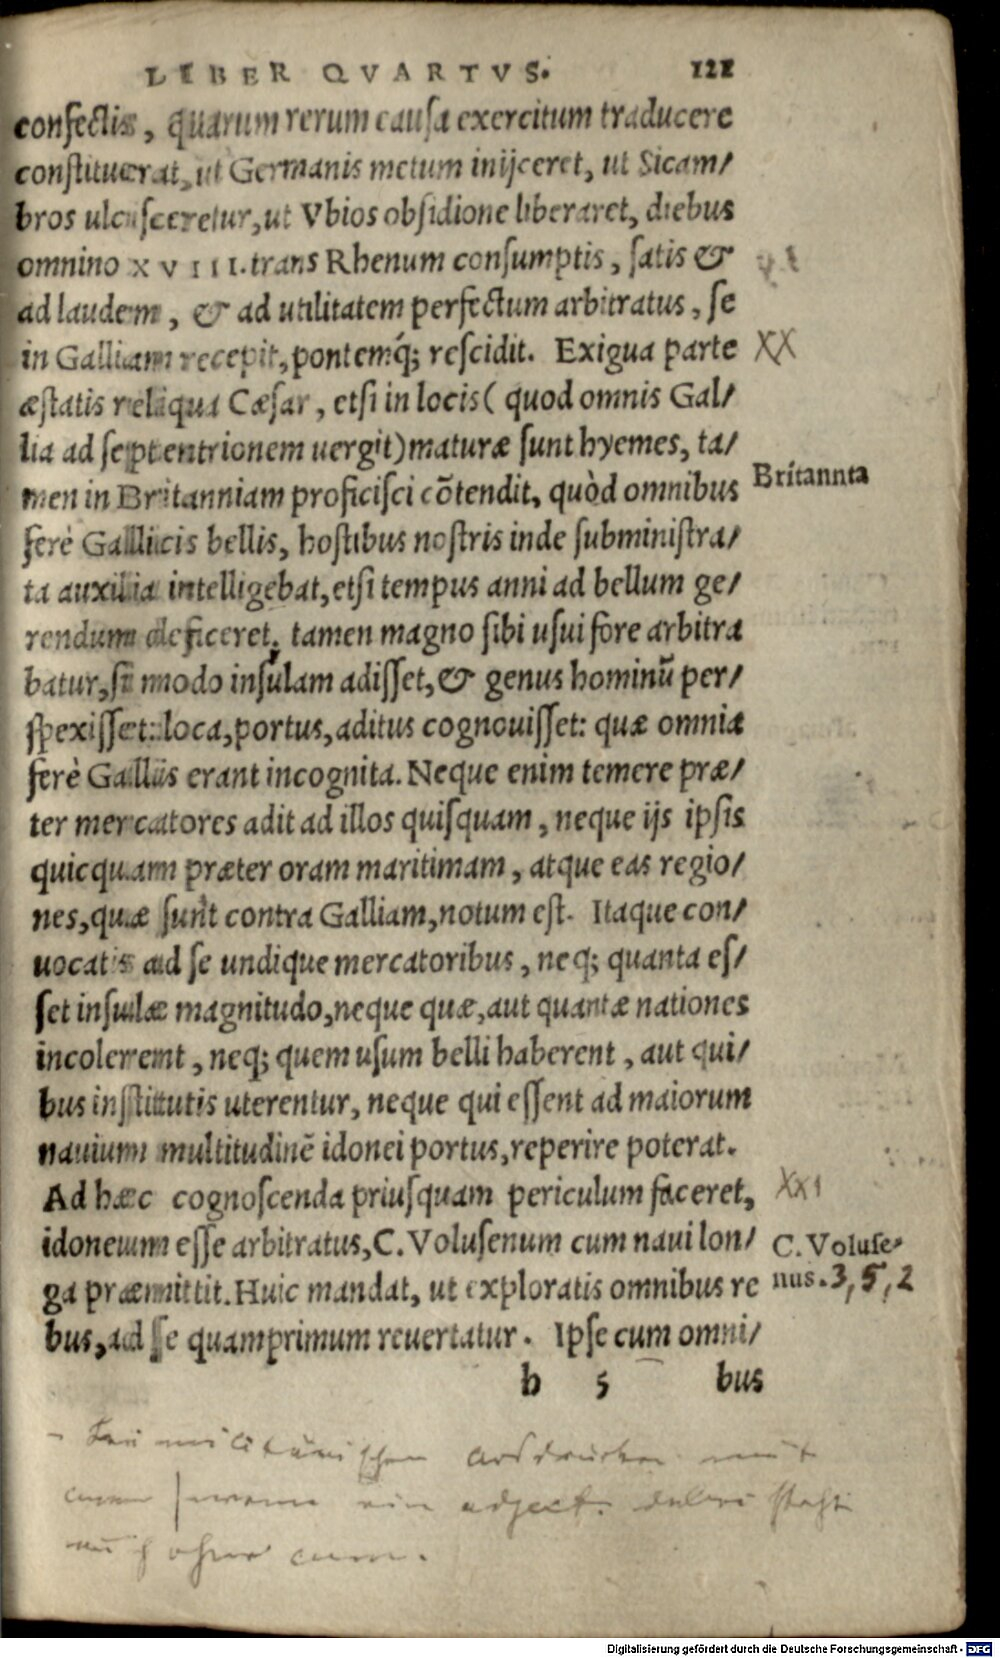 LIBER QVARTVS. 121
confectis, quarum rerum causa exercitum traducere
constituerat, ut Germanis metum inijceret, ut Sicam/
bros ulcisceretur, ut Vbios obsidione liberaret, diebus
omnino XVIII. trans Rhenum consumptis, satis &
ad laudem, & ad utilitatem perfectum arbitratus, se
in Galliam recepit, pontemq́; rescidit. Exigua parte XX
æstatis reliqua Cæsar, etsi in locis (quod omnis Gal/
lia ad septentrionem uergit) maturæ sunt hyemes, ta/
men in Britanniam proficisci cõtendit, quòd omnibus Britannta
ferè Gallicis bellis, hostibus nostris inde subministra/
ta auxilia intelligebat, etsi tempus anni ad bellum ge/
rendum deficeret, tamen magno sibi usui fore arbitra
batur, si modo insulam adisset, & genus hominũ per/
spexisset: loca, portus, aditus cognouisset: quæ omnia
ferè Gallis erant incognita. Neque enim temere præ/
ter mercatores adit ad illos quisquam, neque ijs ipsis
quicquam præter oram maritimam, atque eas regio/
nes, quæ sunt contra Galliam, notum est. Itaque con/
uocatis ad se undique mercatoribus, neq; quanta es/
set insulæ magnitudo, neque quæ, aut quantæ nationes
incolerent, neq; quem usum belli haberent, aut qui/
bus institutis uterentur, neque qui essent ad maiorum
nauium multitudinẽ idonei portus, reperire poterat.
Ad hæc cognoscenda priusquam periculum faceret, XXI
idoneum esse arbitratus, C. Volusenum cum naui lon/ C. Voluse/
ga præmittit. Huic mandat, ut exploratis omnibus re nus. 3, 5, 2
bus, ad se quamprimum reuertatur. Ipse cum omni/
b 5 bus
- militärischen Ausdrücken mit
cum | wenn ein adject. dabei steht
auch ohne cum.
Digitalisierung gefördert durch die Deutsche Forschungsgemeinschaft - DFG